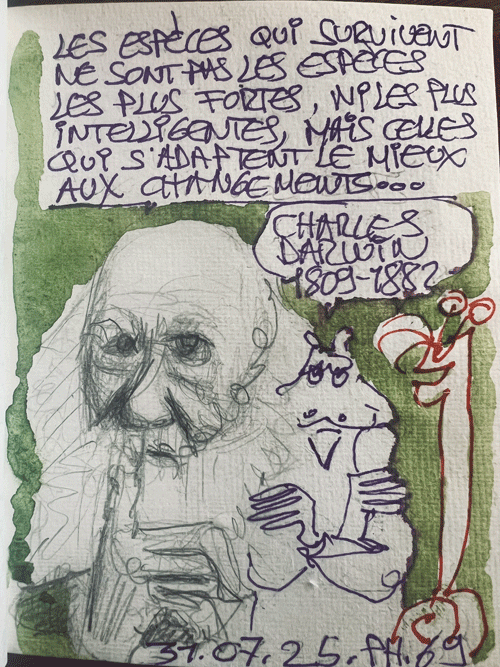 LES ESPÈCES QUI SURVIVENT
NE SONT PAS LES ESPÈCES
LES PLUS FORTES, NI LES PLUS
INTELLIGENTES, MAIS CELLES
QUI S'ADAPTENT LE MIEUX
AUX CHANGEMENTS...
CHARLES
DARWIN
1809-1882
31.07.25. PH. 69